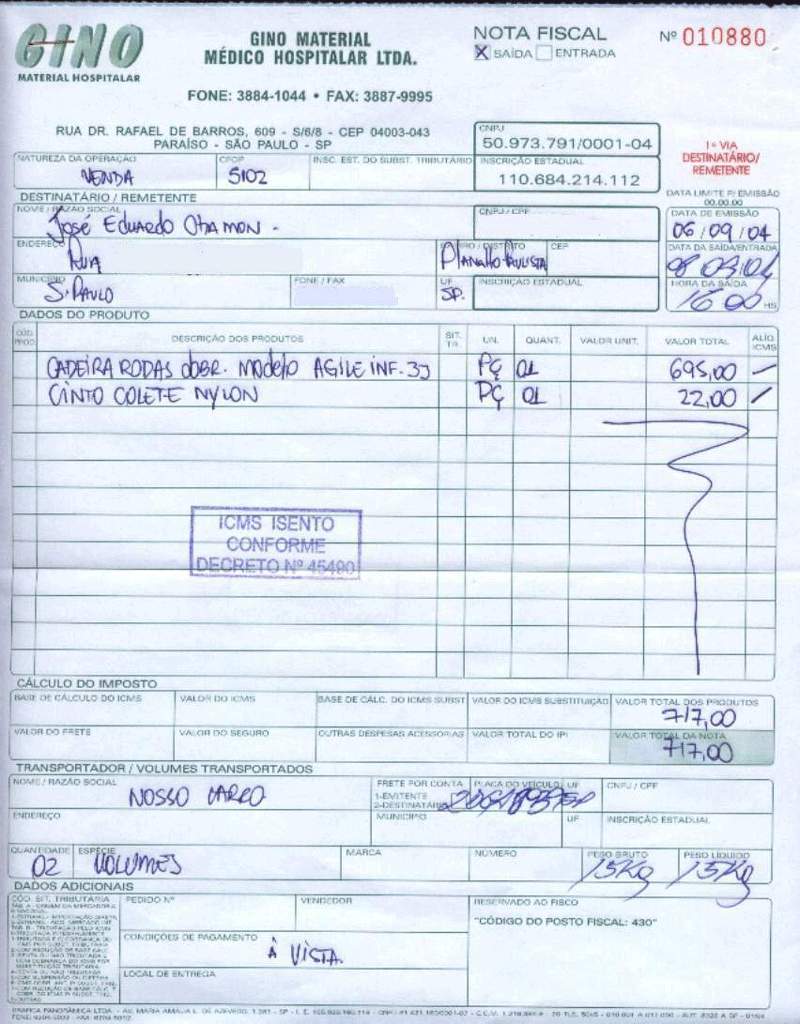 GINO
MATERIAL HOSPITALAR
GINO MATERIAL
MÉDICO HOSPITALAR LTDA.
FONE: 3884-1044 • FAX: 3887-9995
RUA DR. RAFAEL DE BARROS, 609 - S/6/8 - CEP 04003-043
PARAÍSO - SÃO PAULO - SP
NOTA FISCAL
X SAÍDA ENTRADA
Nº 010880
CNPJ
50.973.791/0001-04
INSCRIÇÃO ESTADUAL
110.684.214.112
1ª VIA
DESTINATÁRIO/
REMETENTE
NATUREZA DA OPERAÇÃO
VENDA
CFOP
5102
INSC. EST. DO SUBST. TRIBUTÁRIO
DATA LIMITE P/ EMISSÃO
00.00.00
DESTINATÁRIO / REMETENTE
NOME / RAZÃO SOCIAL
José Eduardo Chamon -
CNPJ / CPF
DATA DE EMISSÃO
06/09/04
ENDEREÇO
Rua
BAIRRO / DISTRITO
Planalto Paulista
CEP
DATA DA SAÍDA/ENTRADA
08/09/04
MUNICÍPIO
S. Paulo
FONE / FAX
UF
SP.
INSCRIÇÃO ESTADUAL
HORA DA SAÍDA
16 00 HS
DADOS DO PRODUTO
CÓD. PROD. DESCRIÇÃO DOS PRODUTOS SIT. TR. UN. QUANT. VALOR UNIT. VALOR TOTAL ALÍQ ICMS
CADEIRA RODAS dobr. Modelo AGILE inf. 33 PÇ 01 695,00
CINTO COLETE NYLON PÇ 01 22,00
ICMS ISENTO
CONFORME
DECRETO Nº 45490
CÁLCULO DO IMPOSTO
BASE DE CÁLCULO DO ICMS VALOR DO ICMS BASE DE CÁLC. DO ICMS SUBST VALOR DO ICMS SUBSTITUIÇÃO VALOR TOTAL DOS PRODUTOS
717,00
VALOR DO FRETE VALOR DO SEGURO OUTRAS DESPESAS ACESSÓRIAS VALOR TOTAL DO IPI VALOR TOTAL DA NOTA
717,00
TRANSPORTADOR / VOLUMES TRANSPORTADOS
NOME / RAZÃO SOCIAL
NOSSO CARRO
FRETE POR CONTA
1-EMITENTE
2-DESTINATÁRIO
PLACA DO VEÍCULO UF
CNPJ / CPF
ENDEREÇO MUNICÍPIO UF INSCRIÇÃO ESTADUAL
QUANTIDADE
02
ESPÉCIE
VOLUMES
MARCA NÚMERO
PESO BRUTO
15Kg
PESO LÍQUIDO
15Kg
DADOS ADICIONAIS
CÓD. SIT. TRIBUTÁRIA
PEDIDO Nº VENDEDOR
RESERVADO AO FISCO
"CÓDIGO DO POSTO FISCAL: 430"
CONDIÇÕES DE PAGAMENTO
À VISTA.
LOCAL DE ENTREGA